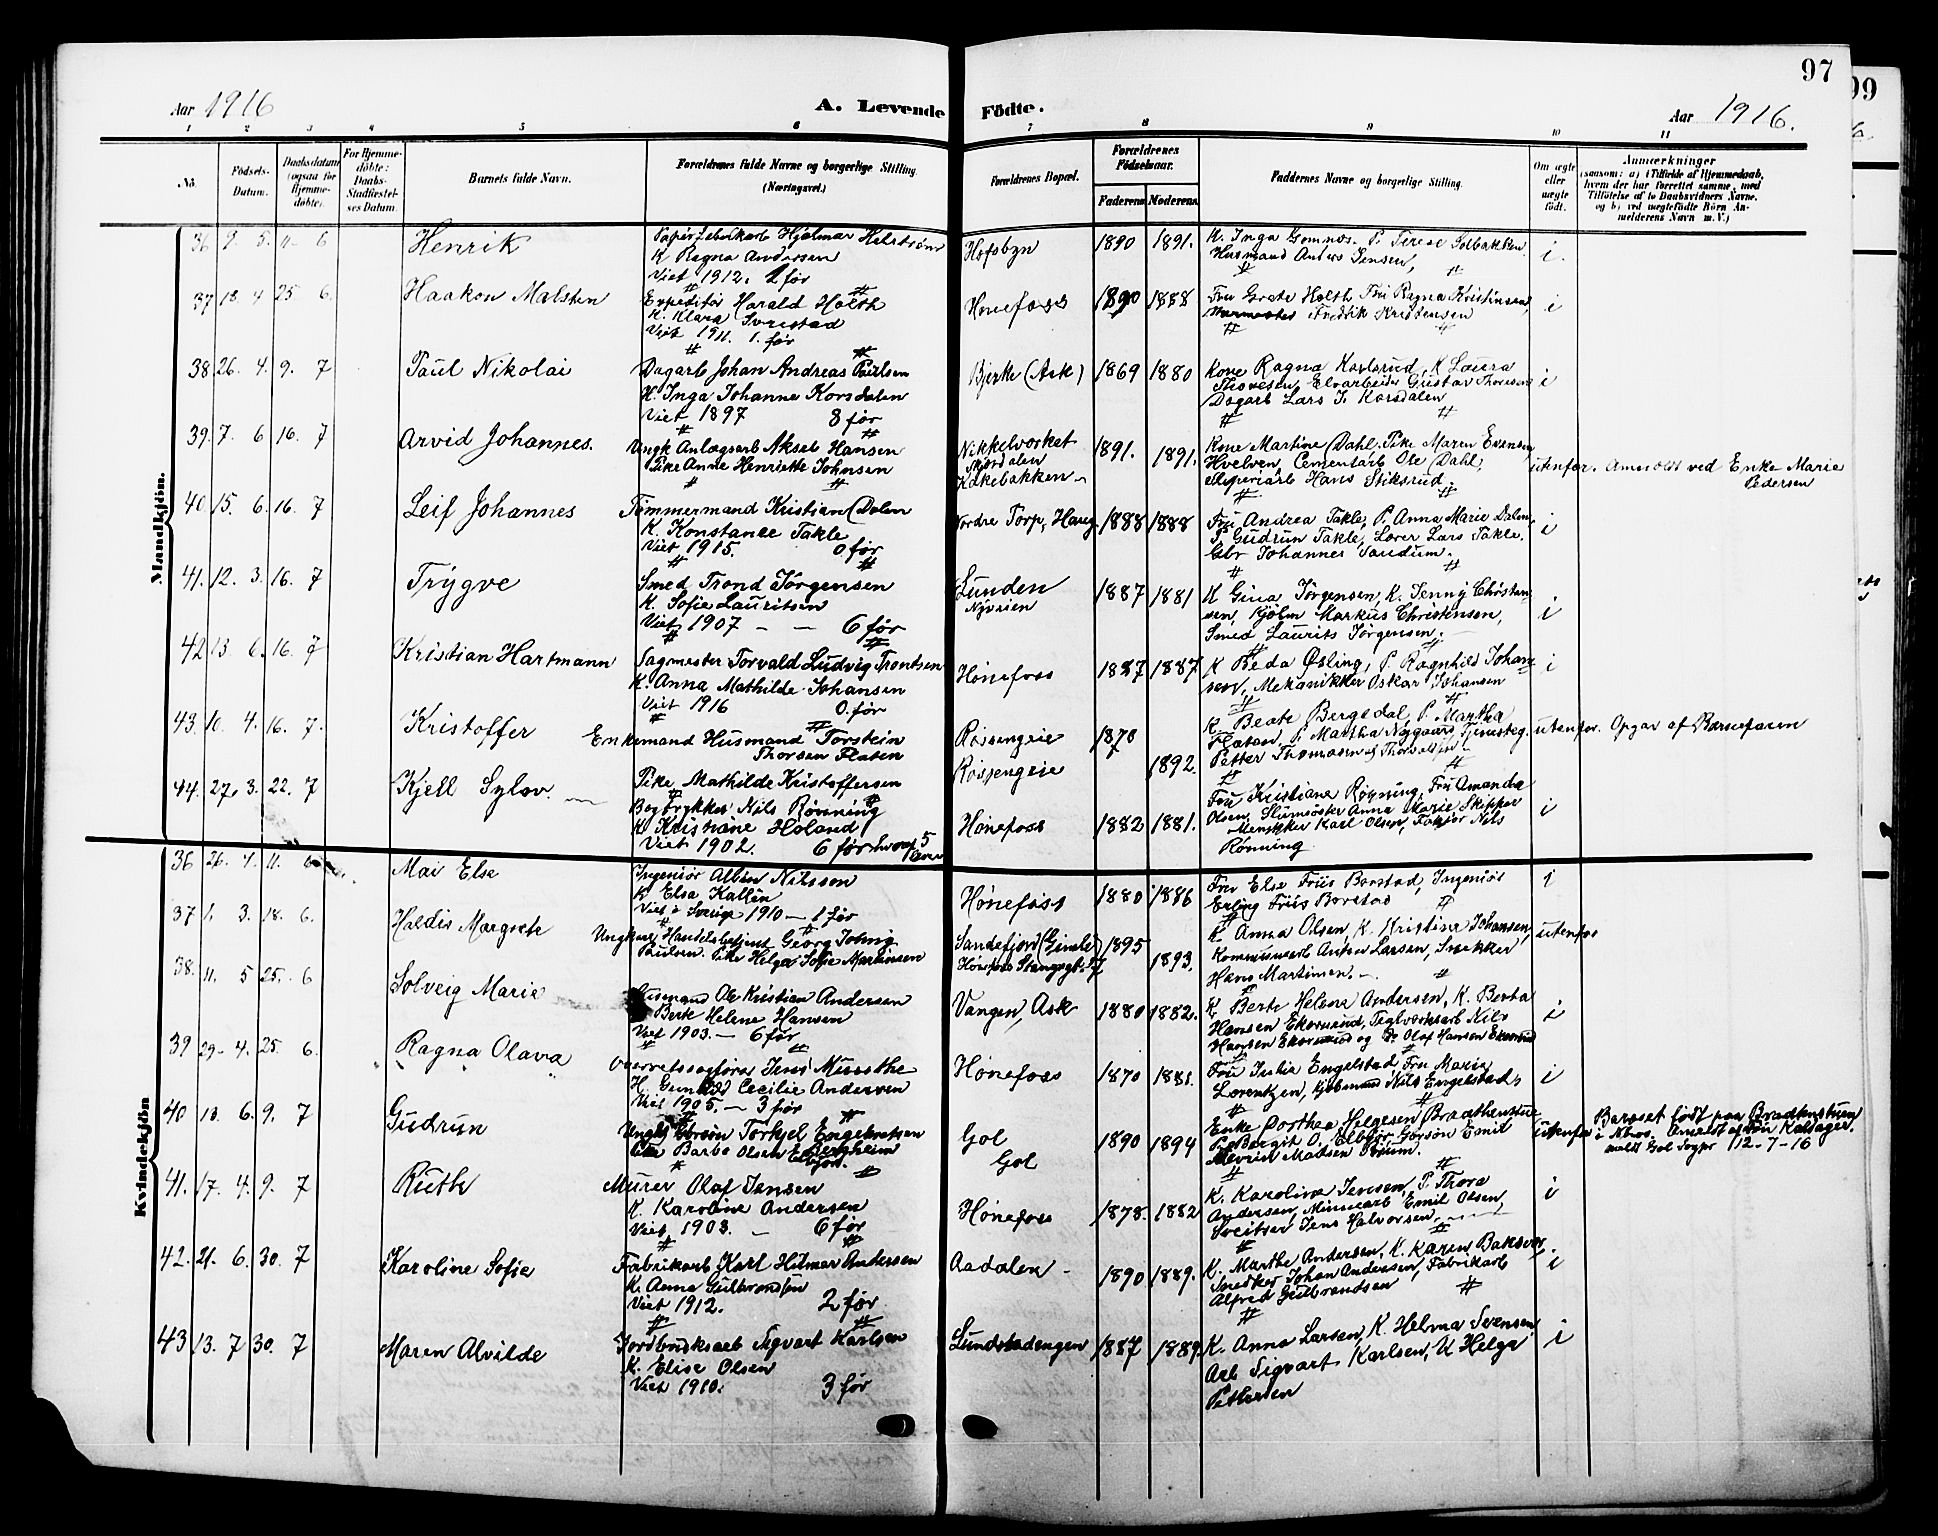 97
99
Aar 1916
A. Levende Fødte.
Aar 1916.
1 2 3 4 5 6 7 8 9 10 11
No.
Fødsels-Datum.
Daabsdatum (ogsaa for Hjemme-døbte).
For Hjemme-døbte: Daabs-Stadfæstel-ses Datum.
Barnets fulde Navn.
Forældrenes fulde Navne og borgerlige Stilling (Næringsvei.)
Forældrenes Bopæl.
Forældrenes Fødselsaar.
Faderens Moderens
Faddernes Navne og borgerlige Stilling.
Om ægte eller uægte født.
Anmærkninger
(saasom: a) i Tilfælde af Hjemmedaab, hvem der har forrettet samme, med Tilføielse af to Daabsvidners Navne, og b) ved uægtefødte Børn An-melderens Navn m. V.)
Mandkjøn.
36 9. 5. 11- 6 Henrik
Hjalmar
K Ragna Andersen
Viet 1912. 1 før
Hofsbyn 1890 1891.
K. Inga Gomnæs. P. Terese Solbakken
Husmand Anders Jensen,
i.
37 18. 4 25 6. Haakon Malsten
Expeditør Harald Holth
K. Klara
Viet 1911. 1. før
Hønefoss 1890 1888
Fru Grete Holth Fru Ragna Kristinsen,
Fredrik Kristensen
i
38 26. 4. 9. 7 Paul Nikolai
Dagarb Johan Andreas Paulsen
K. Inga Johanne Korsdalen
Viet 1897 8 før
Bjerke (Ask) 1869 1880
Kone Ragna Karlsrud, K Laura
Thoresen, Elvarbeider Gustav Thoresen
Dagarb Lars J. Korsdalen
i
39. 7. 6 16. 7 Arvid Johannes.
Ungk Anlægsarb Aksel Hansen
Pike Anne Henriette Johnsen
Nikkelverket
Kakebakken
1891. 1891.
Kone Martine Dahl. Pike Maren Evensen
Hvelven, Cementarb Ole Dahl,
Hans Stiksrud.
utenfor. Anmeldt ved Enke Marie
Pedersen
40 15. 6. 16. 7 Leif Johannes
Tømmermand Kristian Dalen
K. Konstance Takle
Viet 1915. 0 før
Nordre Torp, Haug 1888 1888
Fru Andrea Takle, P. Anna Marie Dalen,
P. Gudrun Takle, Lærer Lars Takle.
Gbr Johannes
i
41. 12. 3. 16. 7 Trygve
Smed Trond Jørgensen
K. Sofie Lauritsen
Viet 1907 - - 6 før
Lunden
1887 1881
K Gina Jørgensen, K. Jenny Christen-
sen, Kjøbm Markus Christensen,
Smed Laurits Jørgensen.
i
42 13 6. 16. 7 Kristian Hartmann
Sagmester Torvald Ludvig Trontsen
K. Anna Mathilde Johansen
Viet 1916 0. før
Hønefoss 1887 1887
K Beda Øsling, P. Ragnhild Johan-
sen, Mekanikker Oskar Johansen
i
43. 10. 4. 16. 7. Kristoffer
Enkemand Husmand Torstein
Thorsen Flaten
Pike Mathilde Kristoffersen
Røssengeie
Røssengeie
1870 1892.
K. Beate Bergedal, P. Martha
Flaten, P Martha Nygaard,
Petter Thomasen
utenfor. Opgav af Barnefaren
44. 27. 3. 22. 7 Kjell Sylov.
Bogtrykker Nils Rønning
K Kristiane Høland
Viet 1902. 6 før hvoraf 5
Hønefoss 1882 1881.
Fru Kristiane Rønning, Fru Amanda
Olsen, Anna Marie Skipper
Karl Olsen, Faktor Nils
Rønning.
i
Kvindekjøn
36 26. 4. 11. 6 Mai Else
Ingeniør Albin Nilsson
K Elsa Kallén
Viet i Sverige 1910 - 1 før
Hønefoss 1880 1886
Fru Else Friis Borstad, Ingeniør
Erling Friis Borstad
i
37 1. 3. 18. 6. Haldis Margrete
Ungkarl Handelsbetjent Georg Johnig
Paulsen. Pike Helga Sofie Martinsen
Sandefjord (Gimle)
Hønefoss Stangsgt. 17
1895 1893.
K. Anna Olsen, K. Kristine Johansen,
Anton Larsen, Snekker
Hans Martinsen.
utenfor
38. 11. 5 25. 6 Solveig Marie
Husmand Ole Kristian Andersen
Berte Helene Hansen
Viet 1903. - 6 før
Vangen, Ask 1880 1882.
K Berte Helene Andersen, K. Berta
Hansen Ekornrud, Teglverksarb Nils
Hansen Ekornrud og Olaf Hansen Ekornrud
i
39 29- 4. 25. 6. Ragna Olava
Overretssagfører Jens
H. Gunhild Cecilie Andersen
Viet 1905. - 3 før
Hønefoss 1870 1881.
Fru Julie Engelstad Fru Marie
Lorentzen, Nils Engelstad,
i
40 13. 6. 9. 7 Gudrun
Ungk Gbrsøn Torkjel Engebretsen
Pike Barbo Olsen Bergheim
Gol
Gol
1890 1894
Enke Dorthea Helgesen Braathenstue
P. Bergit O. Elbjør, Gbrsøn Emil
Madsen
utenfor Barnet født paa Bradenstuen
i Nbros.
meldt Gol Sogpr 12-7-16
41. 17. 4. 9. 7 Ruth
Murer Olaf Jensen
K. Karoline Andersen
Viet 1903. - 6 før
Hønefoss 1878. 1882
K. Karoline Jensen, P. Thora
Andersen, Minearb Emil Olsen,
Sveitser Jens Halvorsen.
i
42. 21. 6. 30. 7 Karoline Sofie
Fabrikarb Karl Hilmar Andersen
K. Anna Gulbrandsen
Viet 1912. 2 før
Aadalen - 1890 1889.
K. Marthe Andersen, K. Karen Baksvor,
Snedker Johan Andersen, Fabrikarb
Alfred Gulbrandsen
i
43 13. 7 30. 7 Maren Alvilde
Jordbruksarb Sigvart Karlsen
K. Elise Olsen
Viet 1910. 3 før
Lundstadengen 1887 1889.
K. Anna Larsen, K. Helma Svensen,
Arb Sigvart Karlsen, U Helge
Pettersen
i